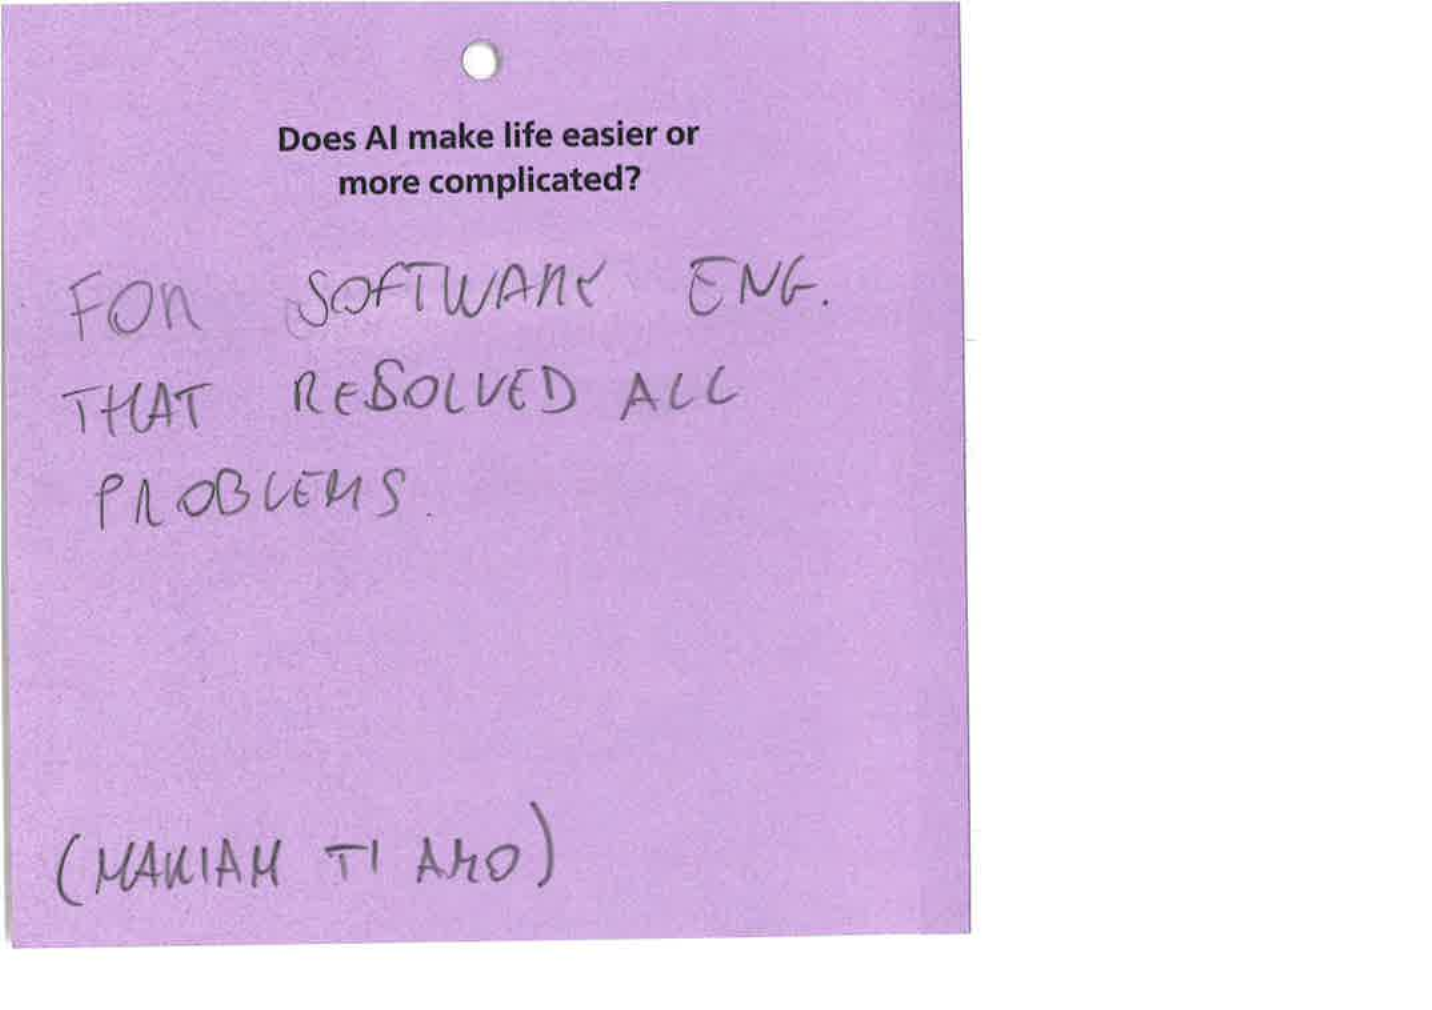 Does AI make life easier or
more complicated?
FOR SOFTWARE ENG.
THAT RESOLVED ALL
PROBLEMS.
(MARIAM TI AMO)